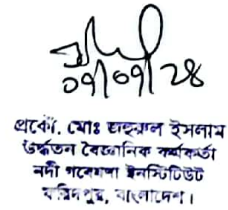 ০৭/০৭/২৪
প্রকৌ. মোঃ জহুরুল ইসলাম
উর্দ্ধতন বৈজ্ঞানিক কর্মকর্তা
নদী গবেষণা ইনস্টিটিউট
ফরিদপুর, বাংলাদেশ।